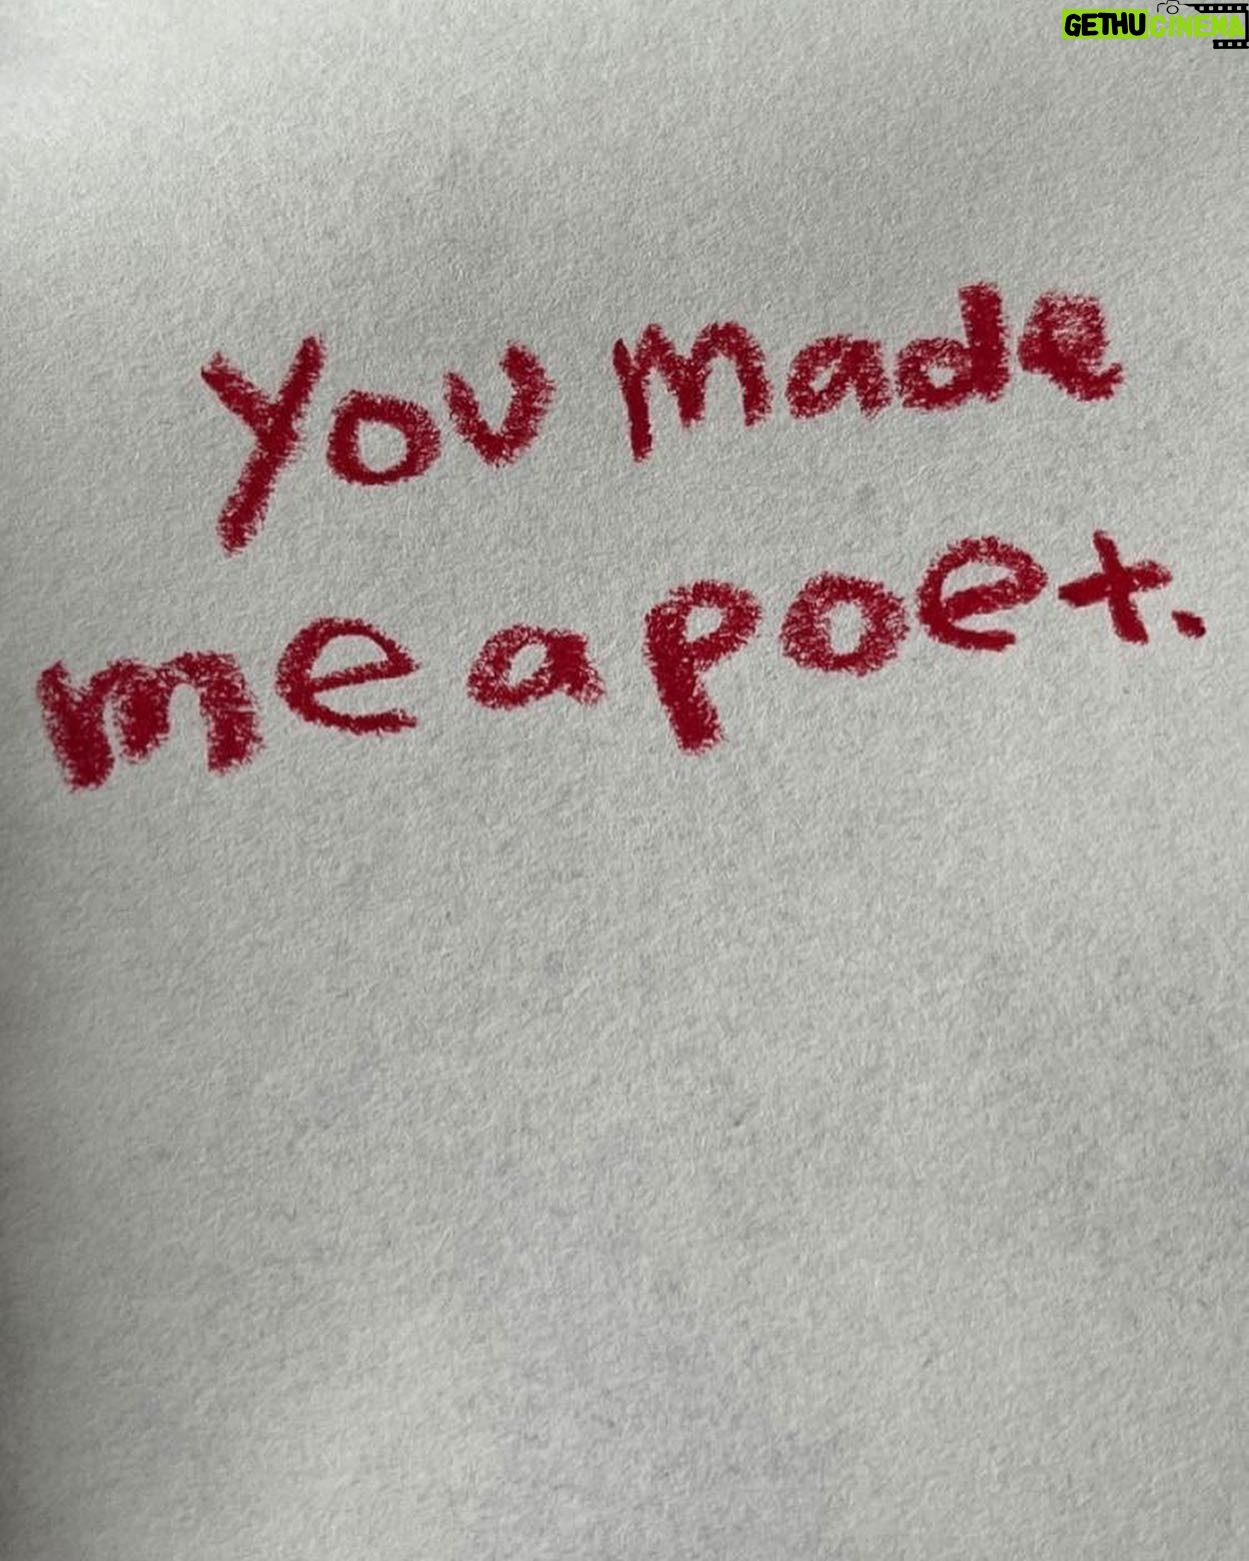 GETHU CINEMA
You made
me a poet.